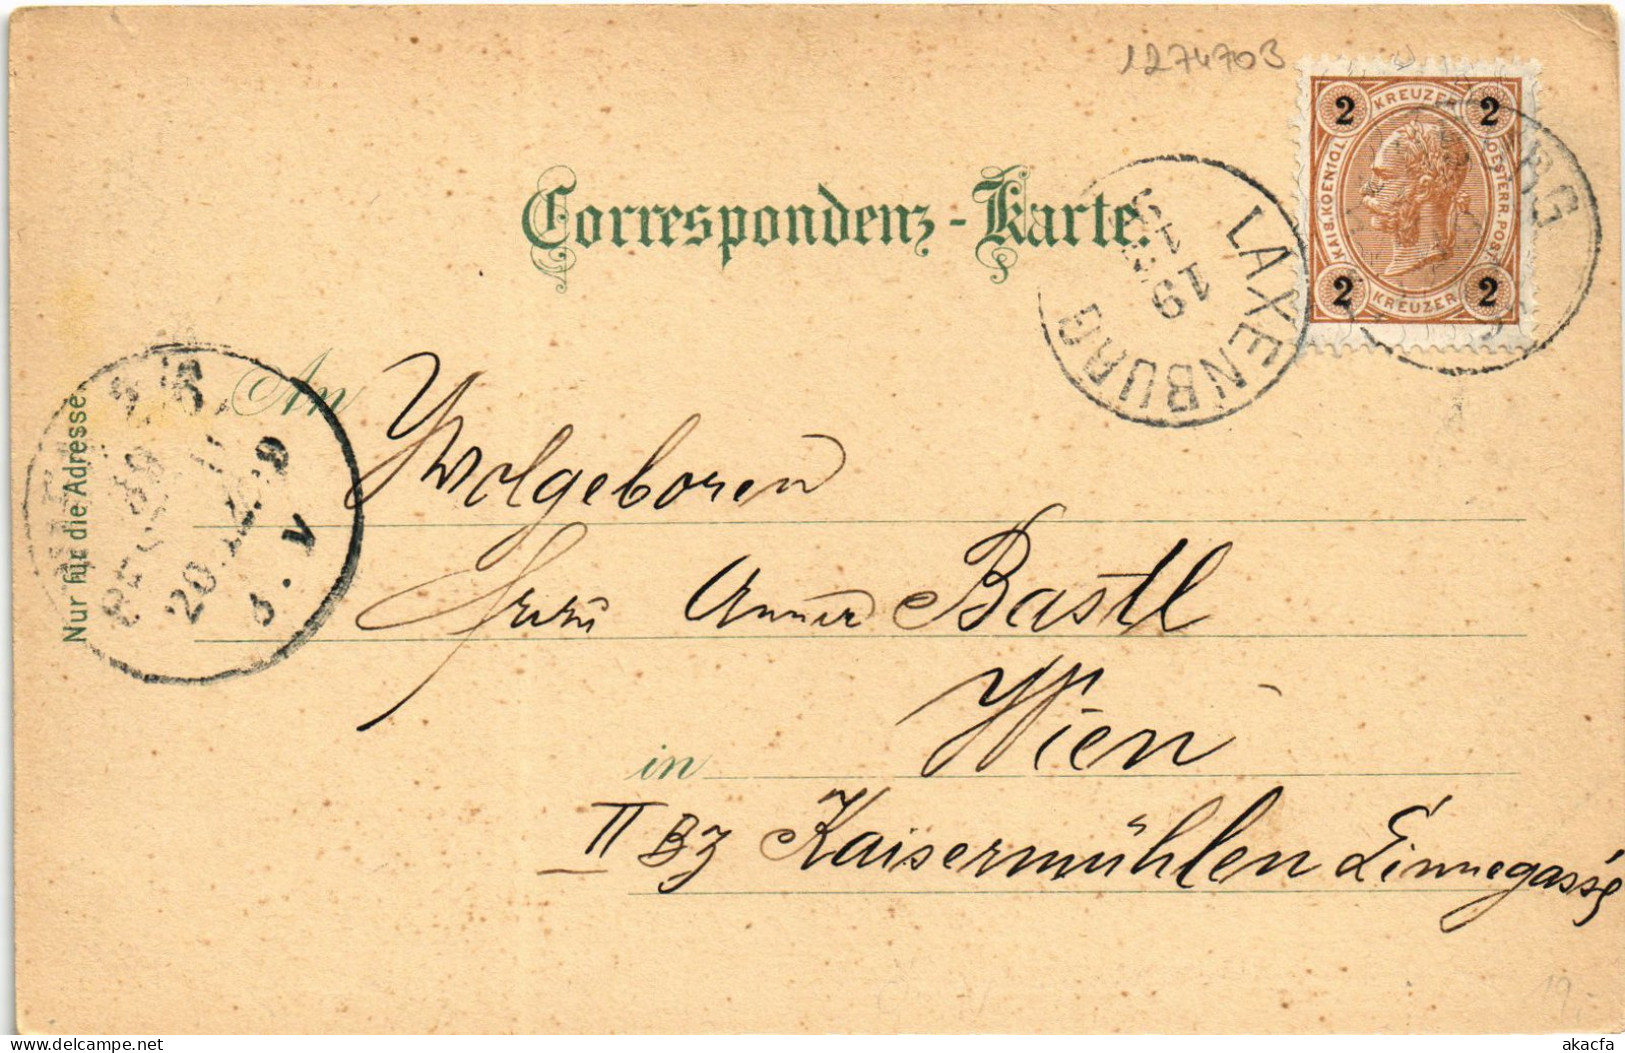 1274703
2 KREUZER 2
KAIS.KOENIGL.
OESTERR.POST
2 KREUZER 2
Correspondenz-Karte.
LAXENBURG
19
11
An
Nur für die Adresse
20.
Wolgeboren
Anna Bastl
in Wien
II Bz Kaisermühlen Linnegasse
19.-
akacfa